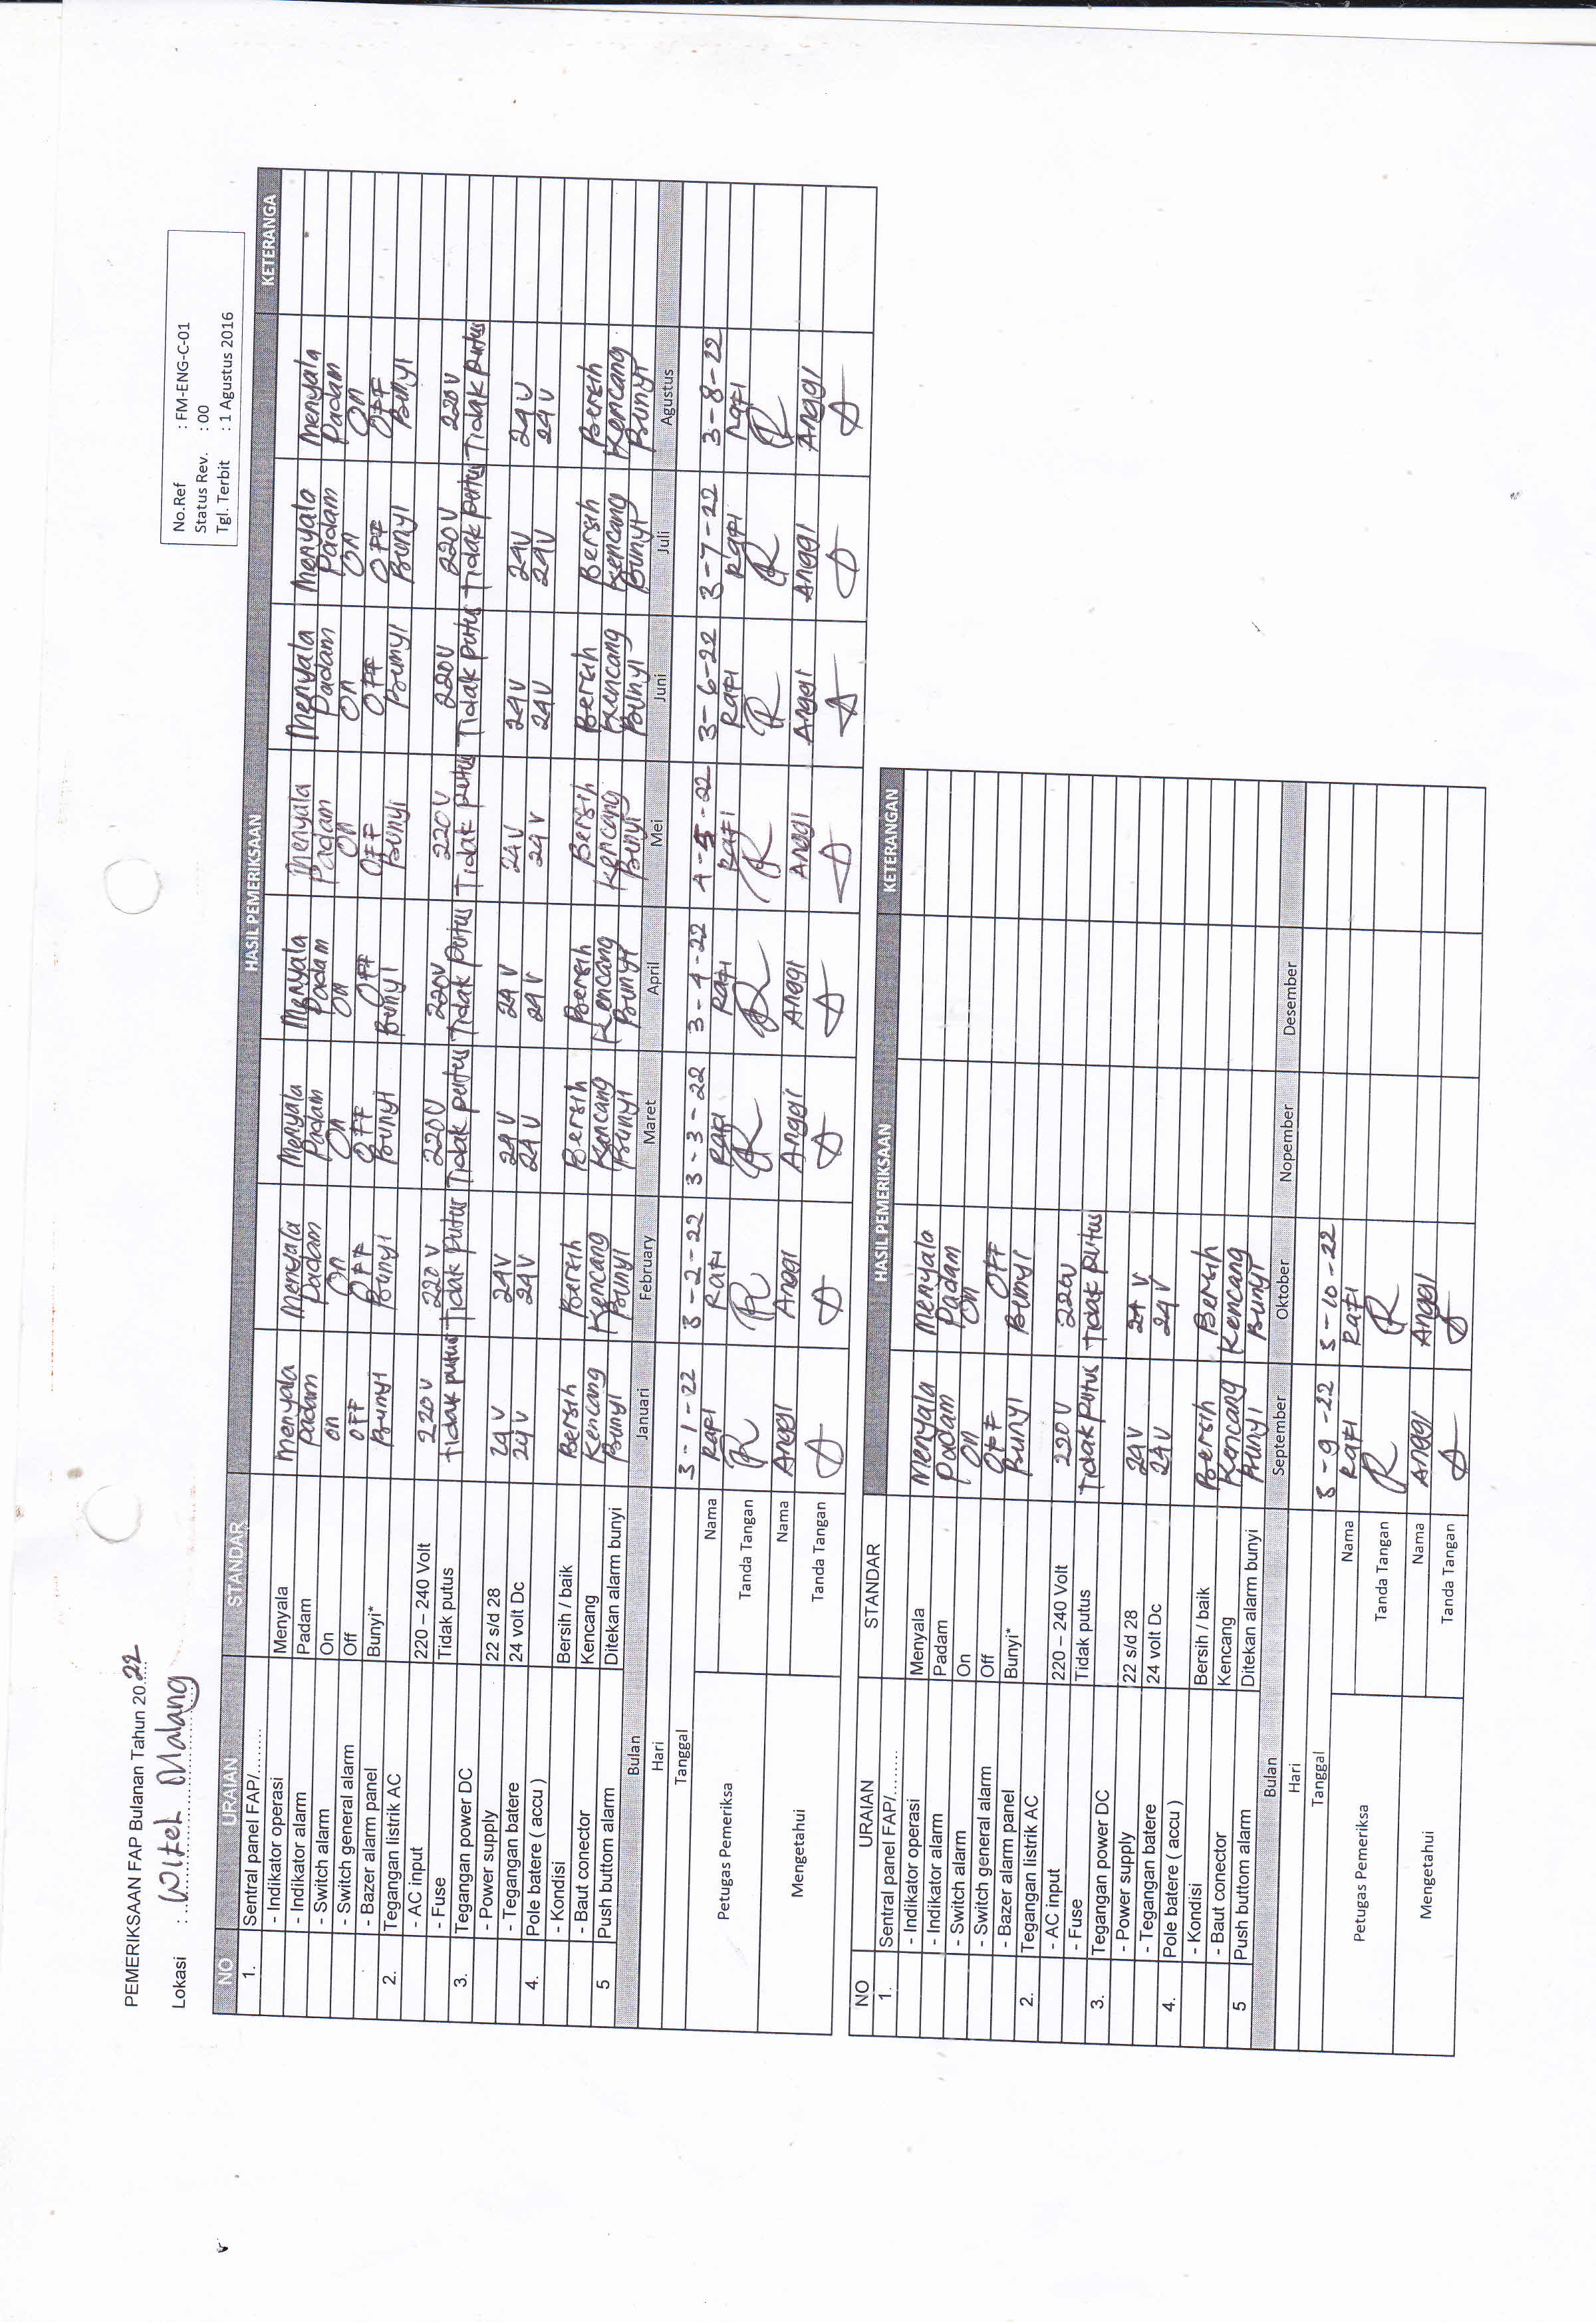 PEMERIKSAAN FAP Bulanan Tahun 20.22
Lokasi : Witel Malang
No.Ref : FM-ENG-C-01
Status Rev. : 00
Tgl. Terbit : 1 Agustus 2016
NO URAIAN STANDAR HASIL PEMERIKSAAN KETERANGA
1. Sentral panel FAP/........
- Indikator operasi Menyala Menyala Menyala Menyala Menyala Menyala Menyala Menyala Menyala
- Indikator alarm Padam Padam Padam Padam Padam Padam Padam Padam Padam
- Switch alarm On on On On On On On On On
- Switch general alarm Off OFF OFF OFF OFF OFF OFF OFF OFF
- Bazer alarm panel Bunyi* Bunyi Bunyi Bunyi Bunyi Bunyi Bunyi Bunyi Bunyi
2. Tegangan listrik AC
- AC input 220 – 240 Volt 220 V 220 V 220V 220V 220 V 220V 220V 220V
- Fuse Tidak putus tidak putus Tidak Putus Tidak putus Tidak Putus Tidak Putus Tidak putus Tidak putus Tidak putus
3. Tegangan power DC
- Power supply 22 s/d 28 24 V 24V 24 V 24 V 24V 24V 24V 24V
- Tegangan batere 24 volt Dc 24 V 24V 24 V 24 V 24 V 24V 24V 24V
4. Pole batere ( accu )
- Kondisi Bersih / baik Bersih Bersih Bersih Bersih Bersih Bersih Bersih Bersih
- Baut conector Kencang Kencang Kencang Kencang Kencang Kencang Kencang Kencang Kencang
5 Push buttom alarm Ditekan alarm bunyi Bunyi Bunyi Bunyi Bunyi Bunyi Bunyi Bunyi Bunyi
Bulan Januari February Maret April Mei Juni Juli Agustus
Hari
Tanggal 3-1-22 3-2-22 3-3-22 3-4-22 4-5-22 3-6-22 3-7-22 3-8-22
Petugas Pemeriksa Nama Rafi Rafi Rafi Rafi Rafi Rafi Rafi Rafi
Tanda Tangan
Mengetahui Nama Anggi Anggi Anggi Anggi Anggi Anggi Anggi Anggi
Tanda Tangan
NO URAIAN STANDAR HASIL PEMERIKSAAN KETERANGAN
1. Sentral panel FAP/........
- Indikator operasi Menyala Menyala Menyala
- Indikator alarm Padam Padam Padam
- Switch alarm On On On
- Switch general alarm Off OFF OFF
- Bazer alarm panel Bunyi* Bunyi Bunyi
2. Tegangan listrik AC
- AC input 220 – 240 Volt 220 V 220V
- Fuse Tidak putus Tidak Putus Tidak Putus
3. Tegangan power DC
- Power supply 22 s/d 28 24V 24 V
- Tegangan batere 24 volt Dc 24V 24V
4. Pole batere ( accu )
- Kondisi Bersih / baik Bersih Bersih
- Baut conector Kencang Kencang Kencang
5 Push buttom alarm Ditekan alarm bunyi Bunyi Bunyi
Bulan September Oktober Nopember Desember
Hari
Tanggal 3-9-22 3-10-22
Petugas Pemeriksa Nama Rafi Rafi
Tanda Tangan
Mengetahui Nama Anggi Anggi
Tanda Tangan